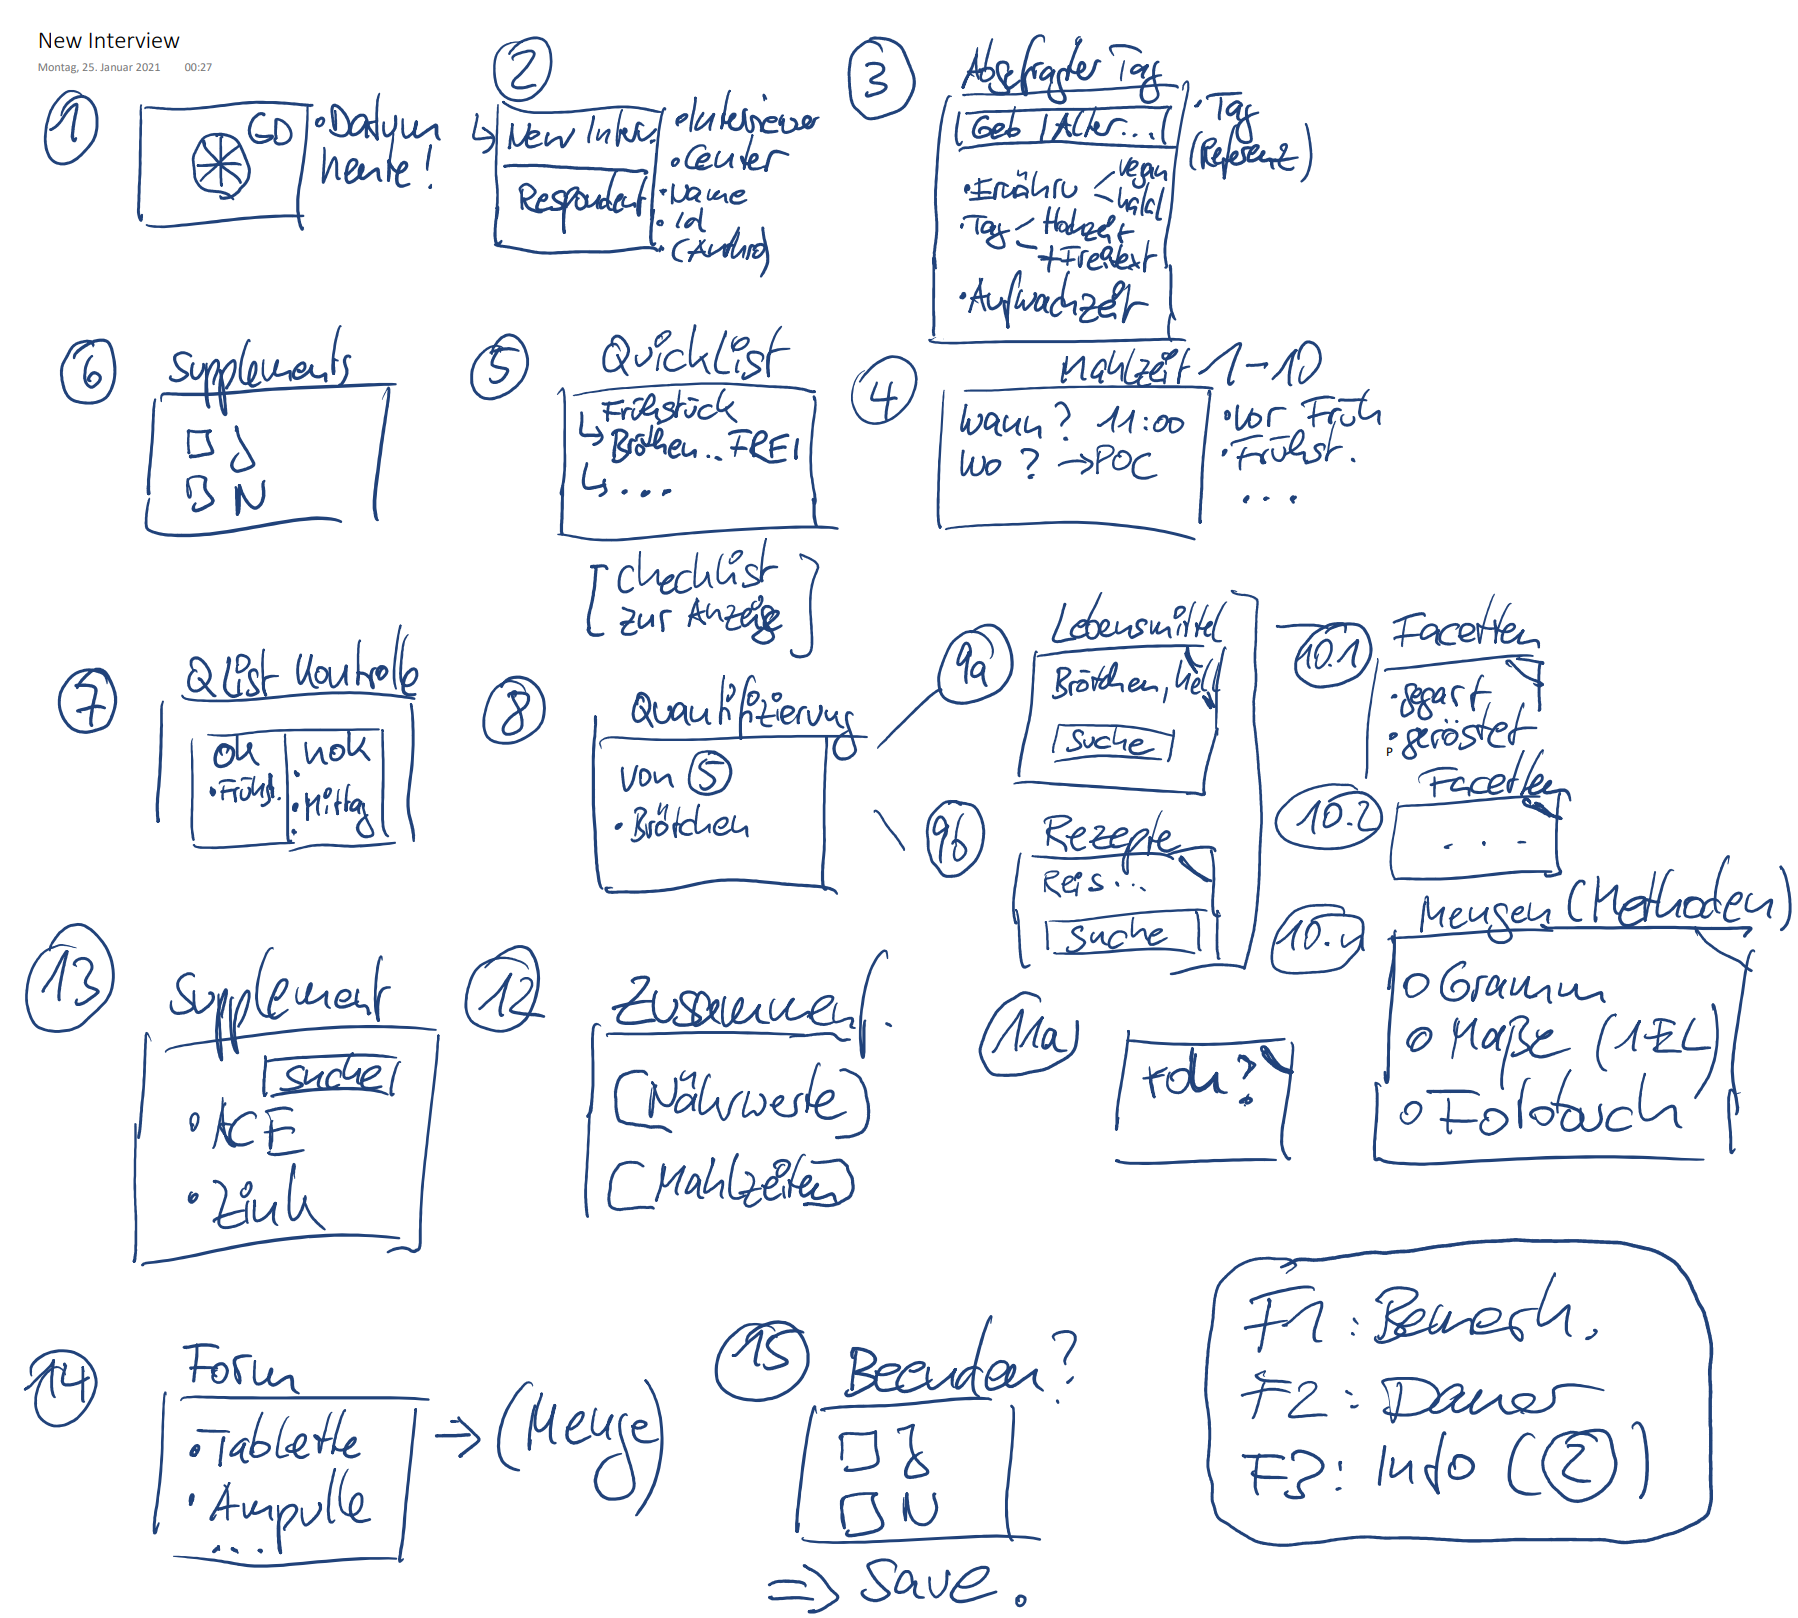 New Interview
Montag, 25. Januar 2021 00:27
1
GD
• Datum
heute!
2
New Interv.
Respondent
• Interviewer
• Center
• Name
• Id
• (Anthro)
3
Abgefragter Tag
Geb | Alter...
• Ernähru
vegan
halal
• Tag
Hochzeit
+ Freitext
• Aufwachzeit
• Tag
(Referenz)
6
Supplements
J
N
5
QuickList
Frühstück
Brötchen.. FREI
...
[Checklist
zur Anzeige]
4
Mahlzeit 1-10
Wann? 11:00
Wo? → POC
• vor Früh
• Frühst.
...
7
QList Kontrolle
ok
• Frühst.
nok
• Mittag
8
Quantifizierung
von 5
• Brötchen
9a
Lebensmittel
Brötchen, hell
Suche
9b
Rezepte
Reis...
Suche
10.1
Facetten
• gegart
• geröstet
P
10.2
Facetten
...
10.n
Mengen (Methoden)
O Gramm
O Maße (1EL)
O Fotobuch
13
Supplement
Suche
• ACE
• Zink
12
Zusammenf.
(Nährwerte)
(Mahlzeiten)
11a
roh?
14
Form
• Tablette
• Ampulle
...
⇒ (Menge)
15
Beenden?
J
N
⇒ Save.
F1: Bemerk.
F2: Dauer
F3: Info (2)